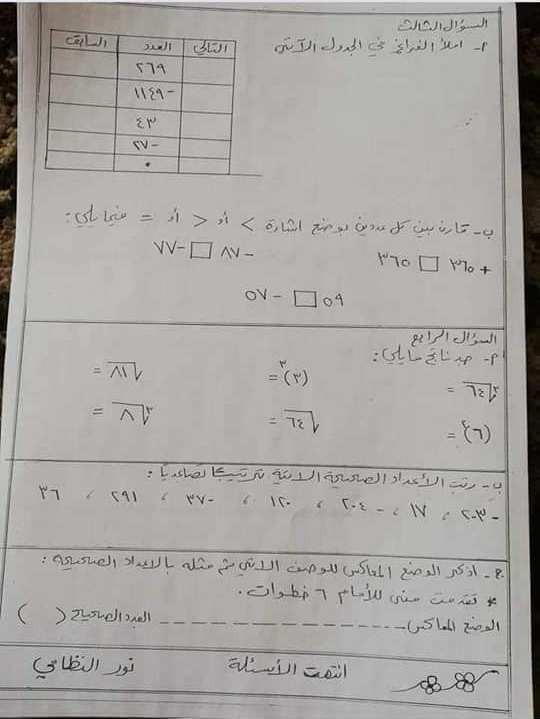 السؤال الثالث
أ- املأ الفراغ في الجدول الآتي
السابق العدد التالي
٢٦٩
-١١٤٩
٤٣
-٢٧
٠
ب- قارن بين كل عددين بوضع اشارة > أو < أو = فيما يلي:
+ ٣٦٥ □ ٣٦٥ -٨٧ □ -٧٧
٥٩ □ -٥٧
السؤال الرابع
أ- جد ناتج ما يلي:
∛٦٤ = (٣)³ = √٨١ =
(٦)² = √٦٤ = ∛٨ =
ب- رتب الأعداد الصحيحة الاتية ترتيبًا تصاعديًا:
-٢٠٣ ، ١٧ ، -٢٠٤ ، ١٢٠ ، -٣٧٠ ، ٢٩١ ، ٣٦
ج- اذكر الوضع المعاكس للوصف الاتي ثم مثله بالاعداد الصحيحة:
* تقدمت منى للأمام ٦ خطوات.
الوضع المعاكس ــــــــــــــــ العدد الصحيح ( )
انتهت الأسئلة نور النظامي